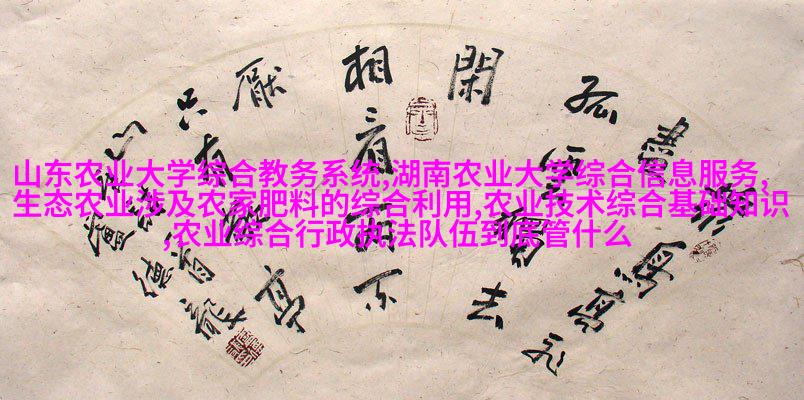 山东农业大学综合教务系统,湖南农业大学综合信息服务,
生态农业涉及农家肥料的综合利用,农业技术综合基础知识
,农业综合行政执法队伍到底管什么
孤云獨去
閑
相看两不
厭
只有敬亭
山